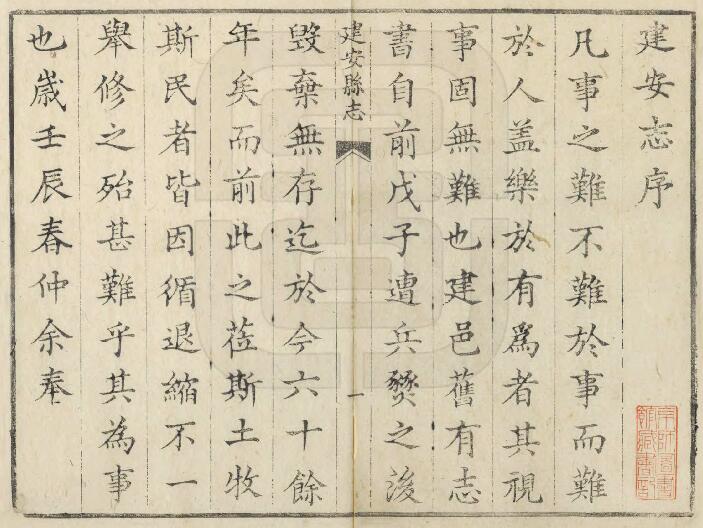 建安志序
凡事之難不難於事而難
於人盖樂於有爲者其視
事固無難也建邑舊有志
書自前戊子遭兵燹之後
建安縣志
一
毀棄無存迄於今六十餘
年矣而前此之莅斯土牧
斯民者皆因循退縮不一
舉修之殆甚難乎其為事
也歲壬辰春仲余奉
京師圖書
館藏書印